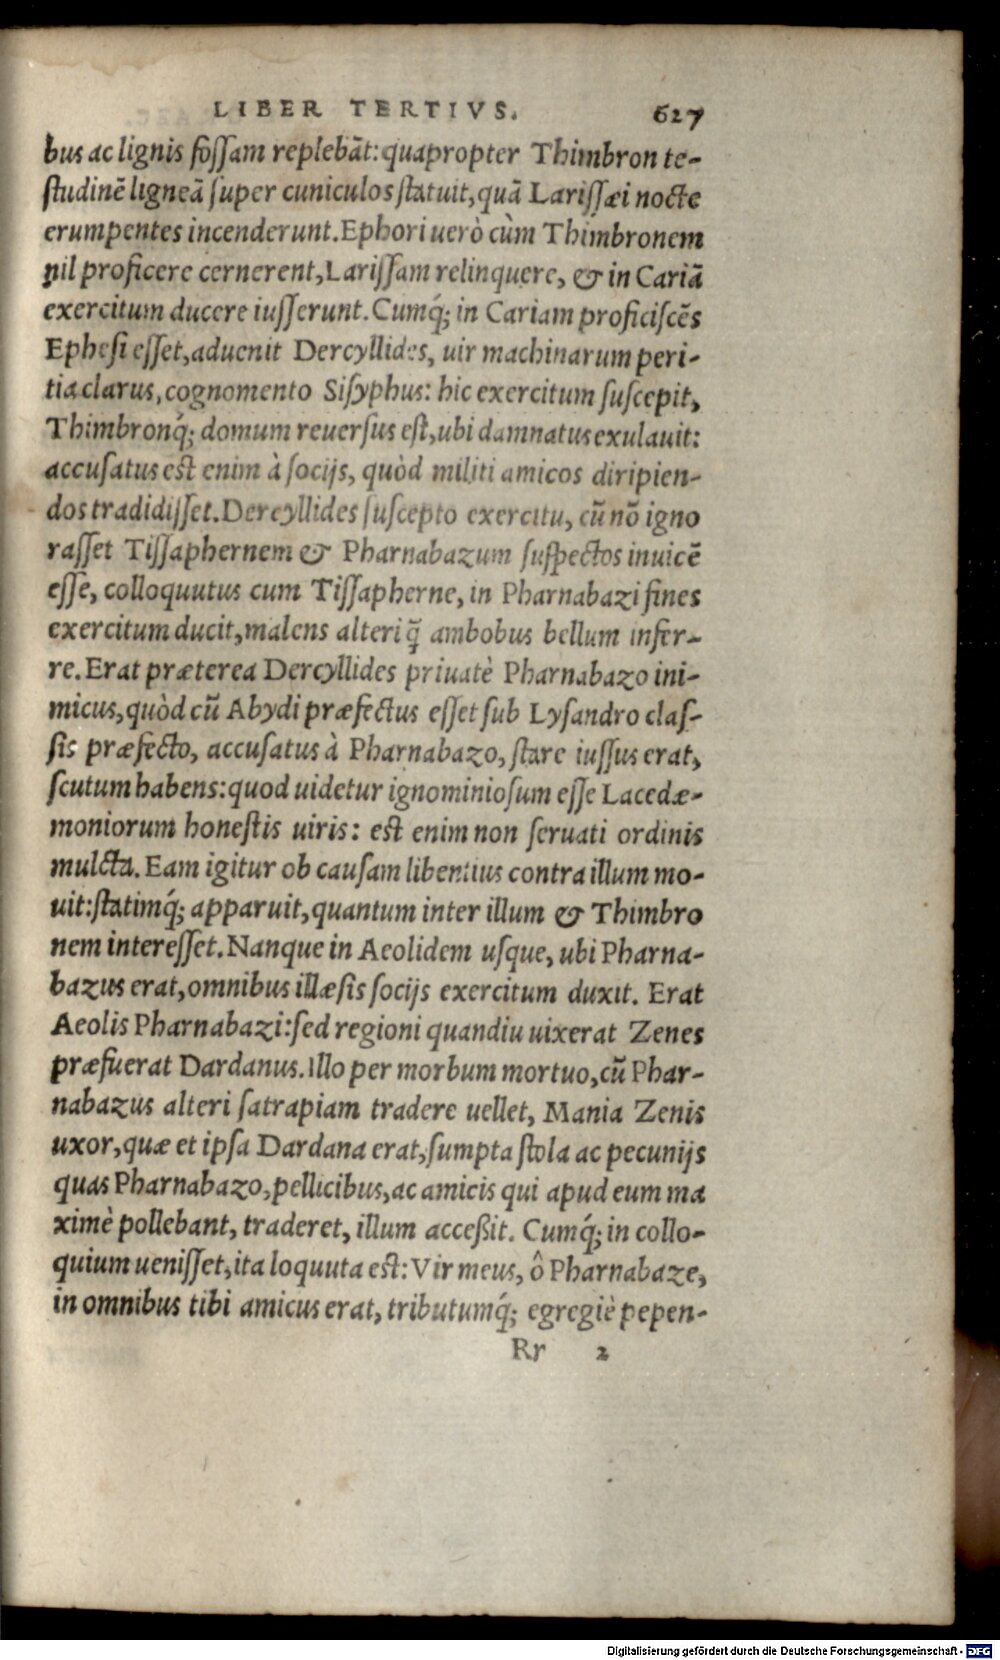 LIBER TERTIVS. 627
bus ac lignis fossam replebāt: quapropter Thimbron te-
studinē ligneā super cuniculos statuit, quā Larissæi nocte
erumpentes incenderunt. Ephori uerò cùm Thimbronem
nil proficere cernerent, Larissam relinquere, & in Cariā
exercitum ducere iusserunt. Cumq́; in Cariam proficiscēs
Ephesi esset, aduenit Dercyllides, uir machinarum peri-
tia clarus, cognomento Sisyphus: hic exercitum suscepit,
Thimbronq́; domum reuersus est, ubi damnatus exulauit:
accusatus est enim à socijs, quòd militi amicos diripien-
dos tradidisset. Dercyllides suscepto exercitu, cū nō igno
rasset Tissaphernem & Pharnabazum suspectos inuicē
esse, colloquutus cum Tissapherne, in Pharnabazi fines
exercitum ducit, malens alteri q̄ ambobus bellum infer-
re. Erat præterea Dercyllides priuatè Pharnabazo ini-
micus, quòd cū Abydi præfectus esset sub Lysandro clas-
sis præfecto, accusatus à Pharnabazo, stare iussus erat,
scutum habens: quod uidetur ignominiosum esse Lacedæ-
moniorum honestis uiris: est enim non seruati ordinis
mulcta. Eam igitur ob causam libentius contra illum mo-
uit: statimq́; apparuit, quantum inter illum & Thimbro
nem interesset. Nanque in Aeolidem usque, ubi Pharna-
bazus erat, omnibus illæsis socijs exercitum duxit. Erat
Aeolis Pharnabazi: sed regioni quandiu uixerat Zenes
præfuerat Dardanus. Illo per morbum mortuo, cū Phar-
nabazus alteri satrapiam tradere uellet, Mania Zenis
uxor, quæ et ipsa Dardana erat, sumpta stola ac pecunijs
quas Pharnabazo, pellicibus, ac amicis qui apud eum ma
ximè pollebant, traderet, illum acceßit. Cumq́; in collo-
quium uenisset, ita loquuta est: Vir meus, ô Pharnabaze,
in omnibus tibi amicus erat, tributumq́; egregiè pepen-
Rr 2
Digitalisierung gefördert durch die Deutsche Forschungsgemeinschaft - DFG